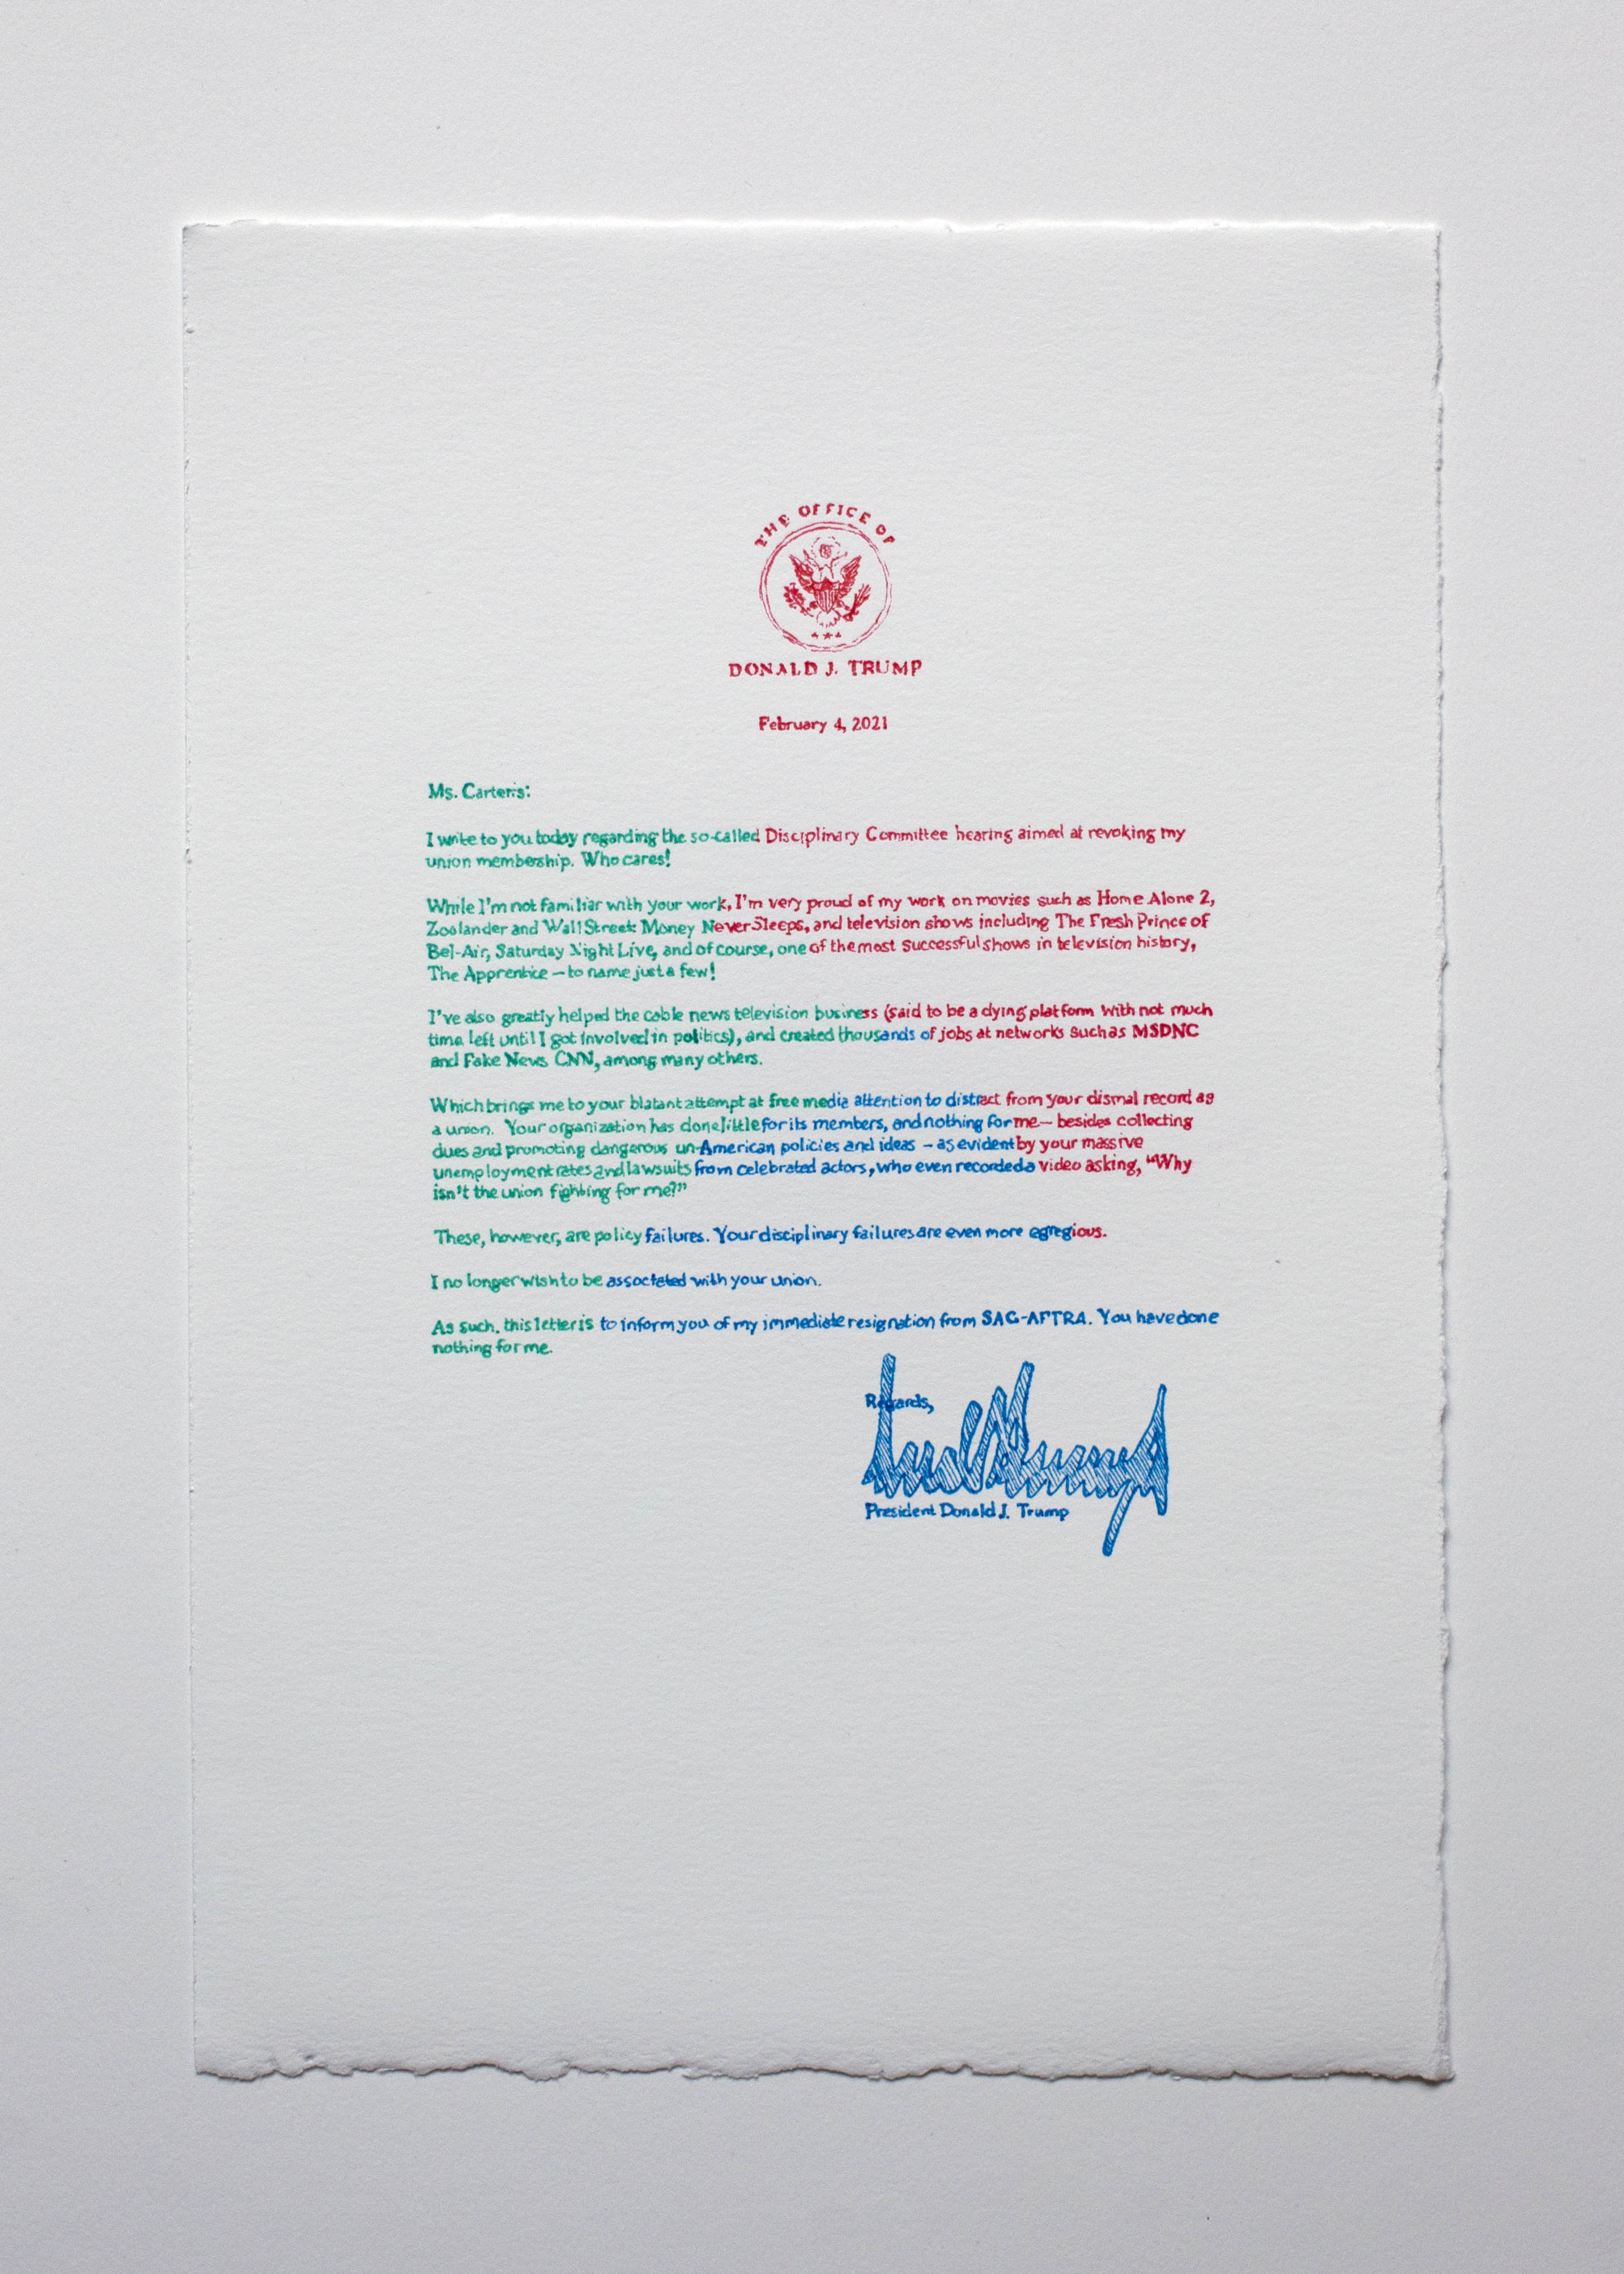 THE OFFICE OF
DONALD J. TRUMP
February 4, 2021
Ms. Carteris:
I write to you today regarding the so-called Disciplinary Committee hearing aimed at revoking my
union membership. Who cares!
While I'm not familiar with your work, I'm very proud of my work on movies such as Home Alone 2,
Zoolander and Wall Street: Money Never Sleeps, and television shows including The Fresh Prince of
Bel-Air, Saturday Night Live, and of course, one of the most successful shows in television history,
The Apprentice – to name just a few!
I've also greatly helped the cable news television business (said to be a dying platform with not much
time left until I got involved in politics), and created thousands of jobs at networks such as MSDNC
and Fake News CNN, among many others.
Which brings me to your blatant attempt at free media attention to distract from your dismal record as
a union. Your organization has done little for its members, and nothing for me – besides collecting
dues and promoting dangerous un-American policies and ideas – as evident by your massive
unemployment rates and lawsuits from celebrated actors, who even recorded a video asking, “Why
isn't the union fighting for me?”
These, however, are policy failures. Your disciplinary failures are even more egregious.
I no longer wish to be associated with your union.
As such, this letter is to inform you of my immediate resignation from SAG-AFTRA. You have done
nothing for me.
Regards,
President Donald J. Trump